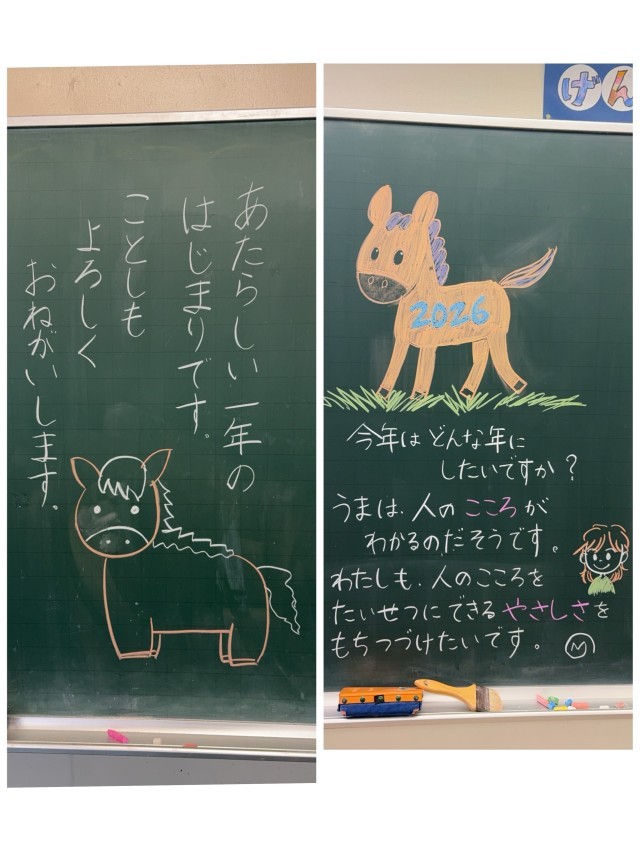 あたらしい一年の
はじまりです。
ことしも
よろしく
おねがいします。
げん
2026
今年はどんな年に
したいですか？
うまは、人のこころが
わかるのだそうです。
わたしも、人のこころを
たいせつにできるやさしさを
もちつづけたいです。
M